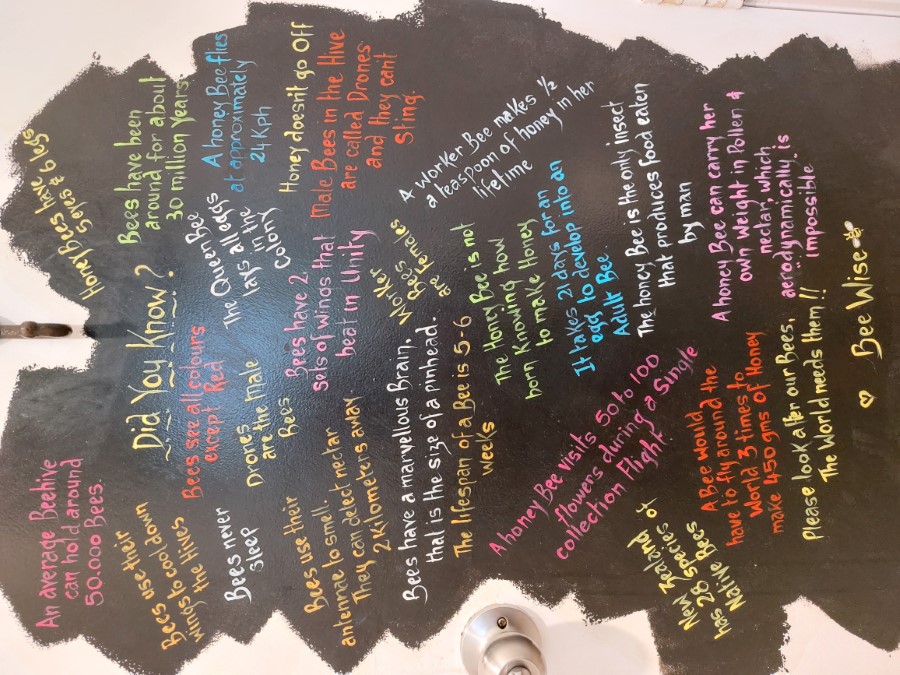 An average Beehive
can hold around
50.000 Bees.
HoneyBees have
5eyes & 6 legs
Did You Know?
Bees use their
wings to cool down
the Hives
Bees see all colours
except Red
Bees have been
around for about
30 million Years
Bees never
sleep
Drones
are the Male
Bees
The Queen Bee
lays all eggs
in the
Colony
A honey Bee flies
at approximately
24 Kph
Honey doesn't go Off
Bees use their
antennae to smell.
They can detect nectar
2 Kilometers away
Bees have 2
sets of wings that
beat in Unity
Male Bees in the Hive
are called Drones
and they can't
Sting.
Worker
Bees
are Females
A worker Bee makes ½
a teaspoon of honey in her
lifetime
Bees have a marvellous Brain,
that is the size of a pinhead.
The lifespan of a Bee is 5-6
weeks
The Honey Bee is not
born Knowing how
to make Honey
It takes 21 days for an
egg to develop into an
Adult Bee.
A honey Bee visits 50 to 100
flowers during a Single
collection Flight
The honey Bee is the only insect
that produces food eaten
by man
New Zealand
has 28 species of
Native Bees
A Bee would
have to fly around the
World 3 times to
make 450 gms of Honey
A honey Bee can carry her
own weight in Pollen &
nectar, which
"aerodynamically" is
impossible
Please look after our Bees,
The World needs them!!
♡ Bee Wise